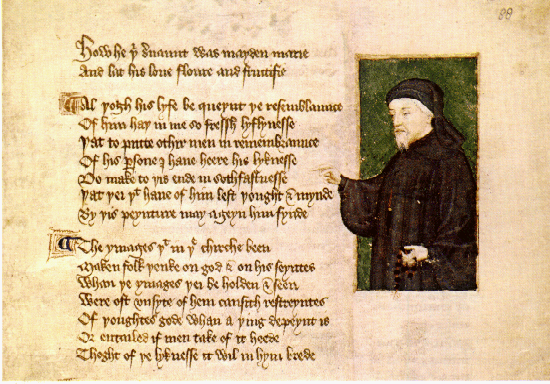 88
How he þⁱ s̾uaunt was mayden marie
And lat his loue floure and fructifie
Al þogh his lyfe be queynt þe resemblaunce
Of him haþ in me so fressh lyflynesse
Þat to putte othir men in remembraunce
Of his ꝑsone I haue heere his lyknesse
Do make to þis ende in sothfastnesse
Þat þei þᵗ haue of him left þought & mynde
By þis peynture may ageyn him fynde
The ymages þᵗ in þᵉ chirche been
Maken folk þenke on god & on his seyntes
Whan þe ymages þei be holden & seen
Were oft vnsyte of hem causith restreyntes
Of þoughtes gode whan a þing depeynt is
Or entailed if men take of it heede
Thoght of þe lyknesse it wil in hym brede